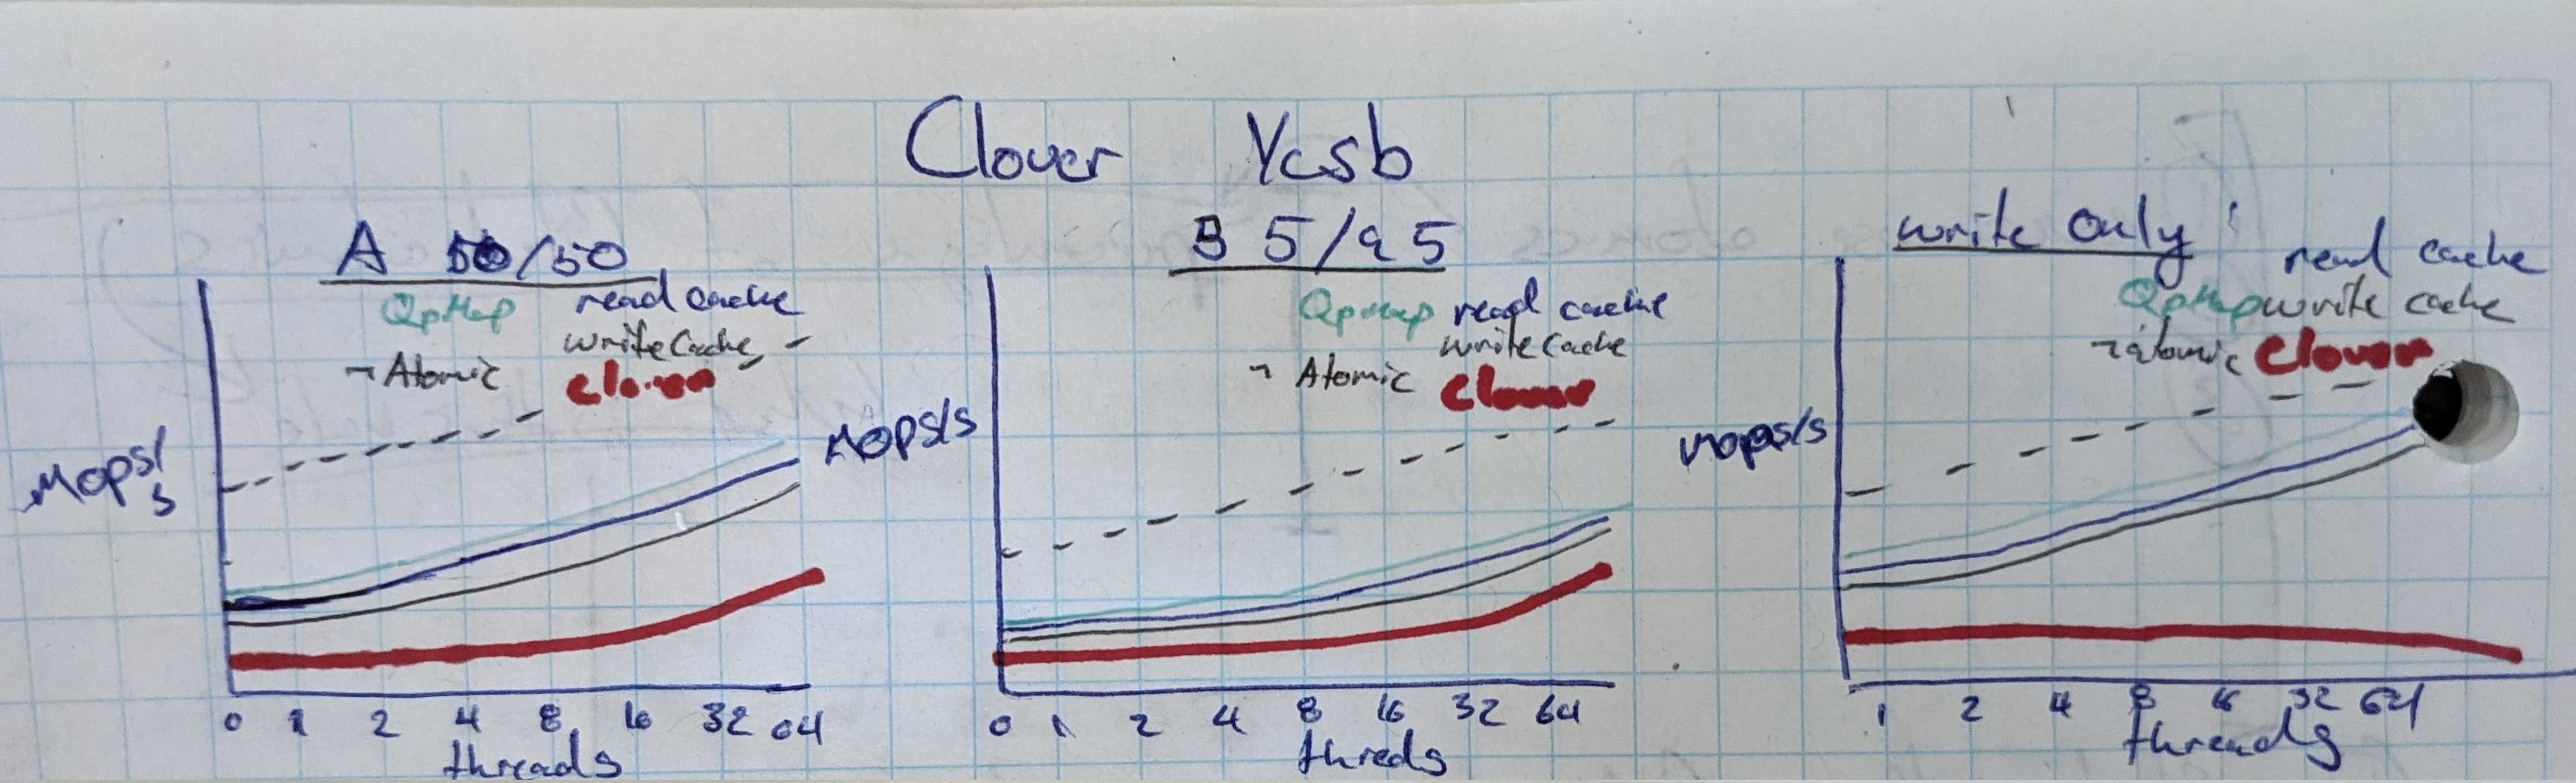 Clover Ycsb
A 50/50
QpMap read cache
write Cache
- Atomic Clover
Mops/
s
0 1 2 4 8 16 32 64
threads
B 5/95
QpMap read cache
write Cache
- Atomic Clover
Mops/s
0 1 2 4 8 16 32 64
threds
write only
read cache
QpMap write cache
- atomic Clover
mops/s
1 2 4 8 16 32 64
threads